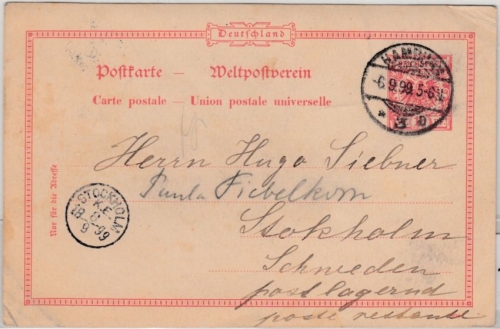 Deutschland
Postkarte — Weltpostverein
Carte postale — Union postale universelle
HAMBURG
-6.9.99.5-6N
* 3 o
Herrn Hugo Siebner
Paula Fiebelkorn
Stokholm
Schweden
postlagernd
poste restante
Nur für die Adresse
STOCKHOLM
K.E.
8
9
99